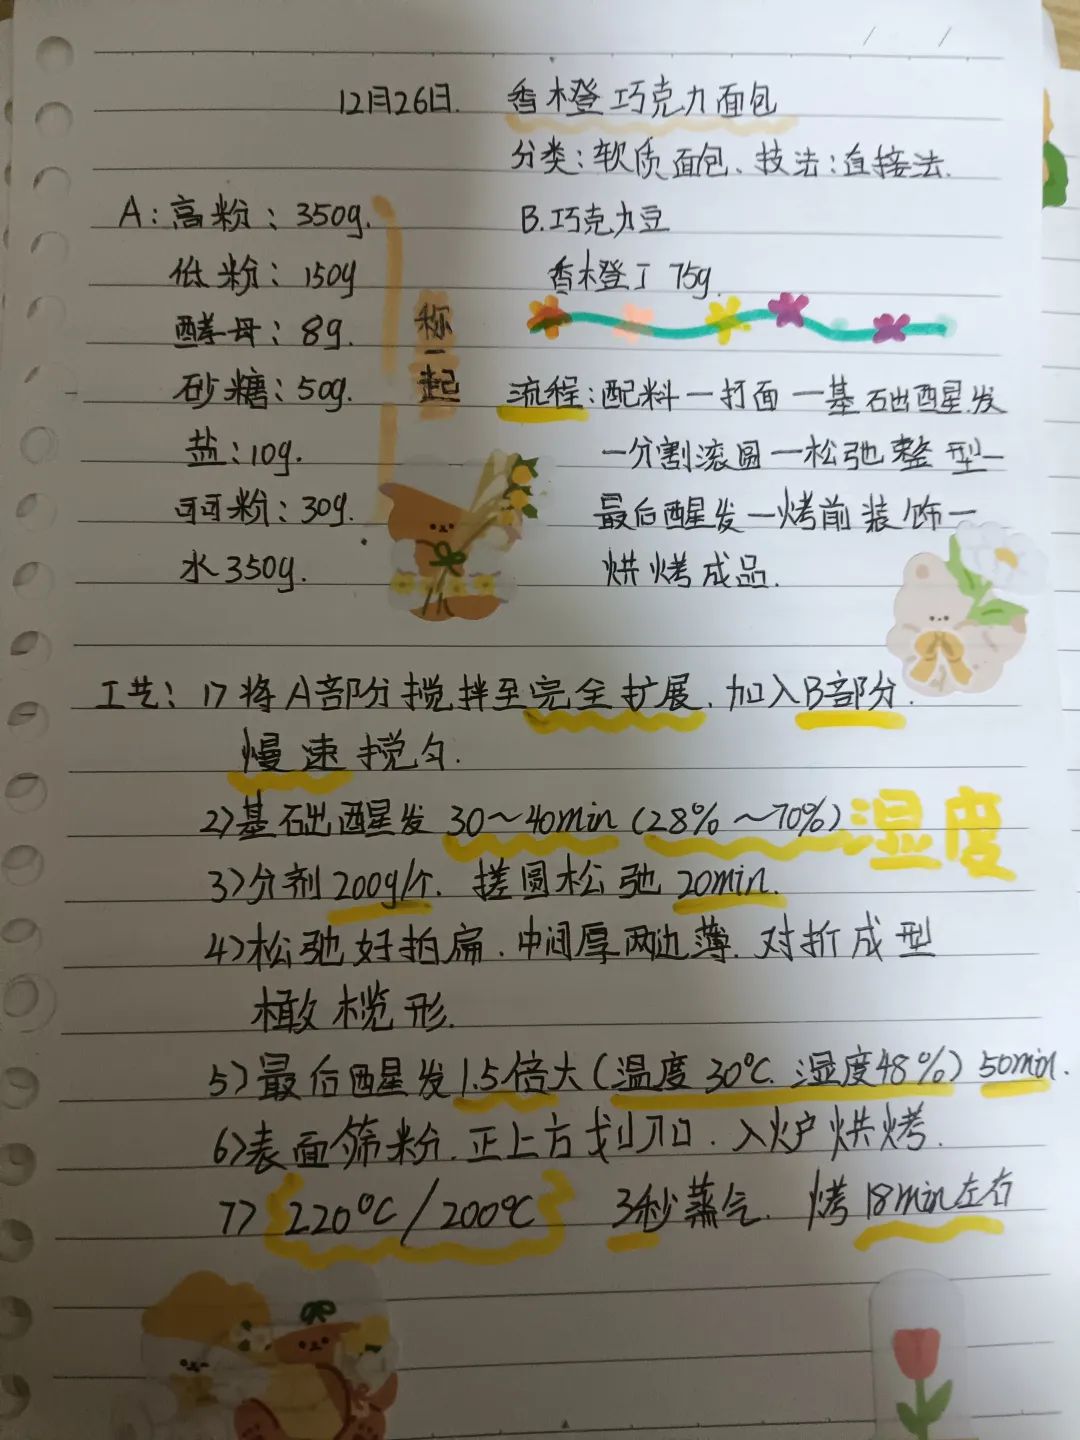 12月26日. 香橙巧克力面包
分类:软质面包、技法:直接法.
A:高粉:350g.
低粉:150g
酵母:8g.
砂糖:50g.
盐:10g.
可可粉:30g.
水350g.
称一起
B.巧克力豆
香橙丁 75g.
流程:配料一打面一基础醒发
一分割滚圆一松弛整型一
最后醒发一烤前装饰一
烘烤成品.
工艺:1>将A部分搅拌至完全扩展.加入B部分.
慢速搅匀.
2>基础醒发 30~40min(28%~70%)湿度
3>分剂200g/个. 搓圆松弛20min.
4>松弛好拍扁.中间厚两边薄.对折成型
橄榄形.
5>最后醒发1.5倍大(温度30°C.湿度48%)50min.
6>表面筛粉.正上方划刀口.入炉烘烤.
7> 220°C/200°C 3秒蒸气. 烤18min左右